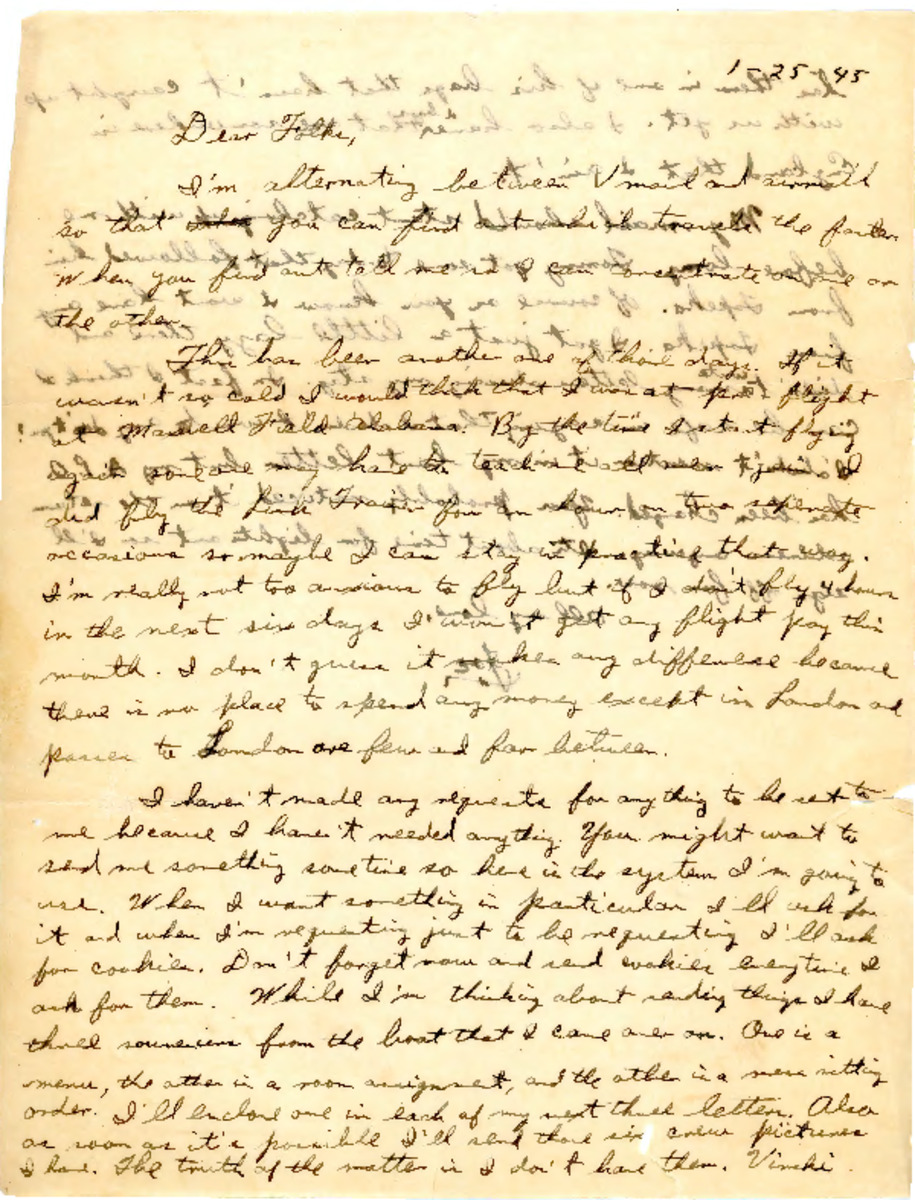 1-25-45
Dear Folks,
I'm alternating between V mail and airmail
so that you can find out which travels the faster
When you find out tell me so I can concentrate on one or
the other.
This has been another one of those days. If it
wasn't so cold I would think that I was at pre-flight
at Maxwell Field Alabama. By the time I start flying
again someone may have to teach me all over again. I
did fly the Link Trainer for an hour on two seperate
occasions so maybe I can stay in practice that way.
I'm really not too anxious to fly but if I don't fly 4 hours
in the next six days I won't get any flight pay this
month. I don't guess it makes any difference because
there is no place to spend any money except in London and
passes to London are few and far between.
I haven't made any requests for anything to be sent to
me because I haven't needed anything. You might want to
send me something sometime so here is the system I'm going to
use. When I want something in particular I'll ask for
it and when I'm requesting just to be requesting I'll ask
for cookies. Don't forget now and send cookies everytime I
ask for them. While I'm thinking about sending things I have
three souveniers from the boat that I came over on. One is a
menu, the other is a room assignment, and the other is a mess sitting
order. I'll enclose one in each of my next three letters. Also
as soon as it's possible I'll send those six crew pictures
I have. The truth of the matter is I don't have them. Vinski